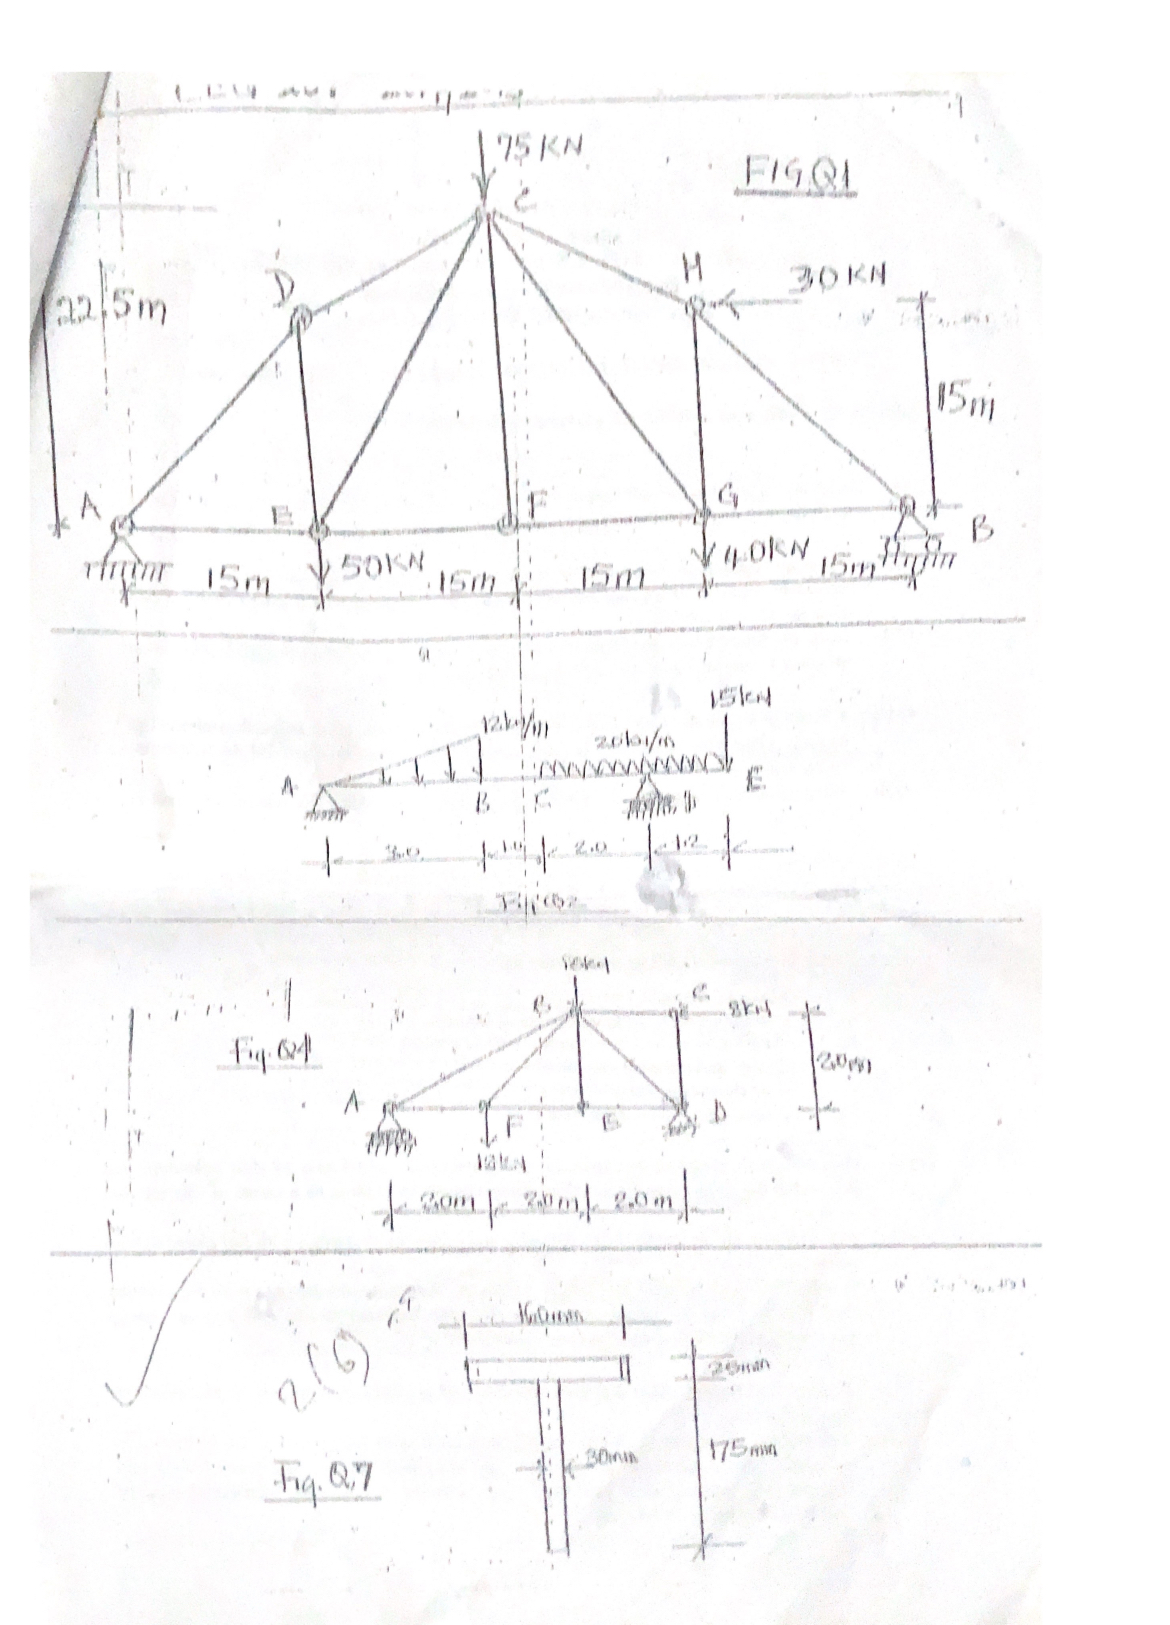 75KN
FIG.Q1
C
H
30KN
D
22.5m
15m
A
E
F
G
B
50KN
40KN
15m
15m
15m
15m
15kN
12kN/m
20kN/m
A
B
C
D
E
3.0
1.0
2.0
1.2
B
C
8kN
Fig. Q4
2.0m
A
F
E
D
12kN
2.0m
2.0m
2.0m
160mm
25mm
2(6)
175mm
30mm
Fig. Q7